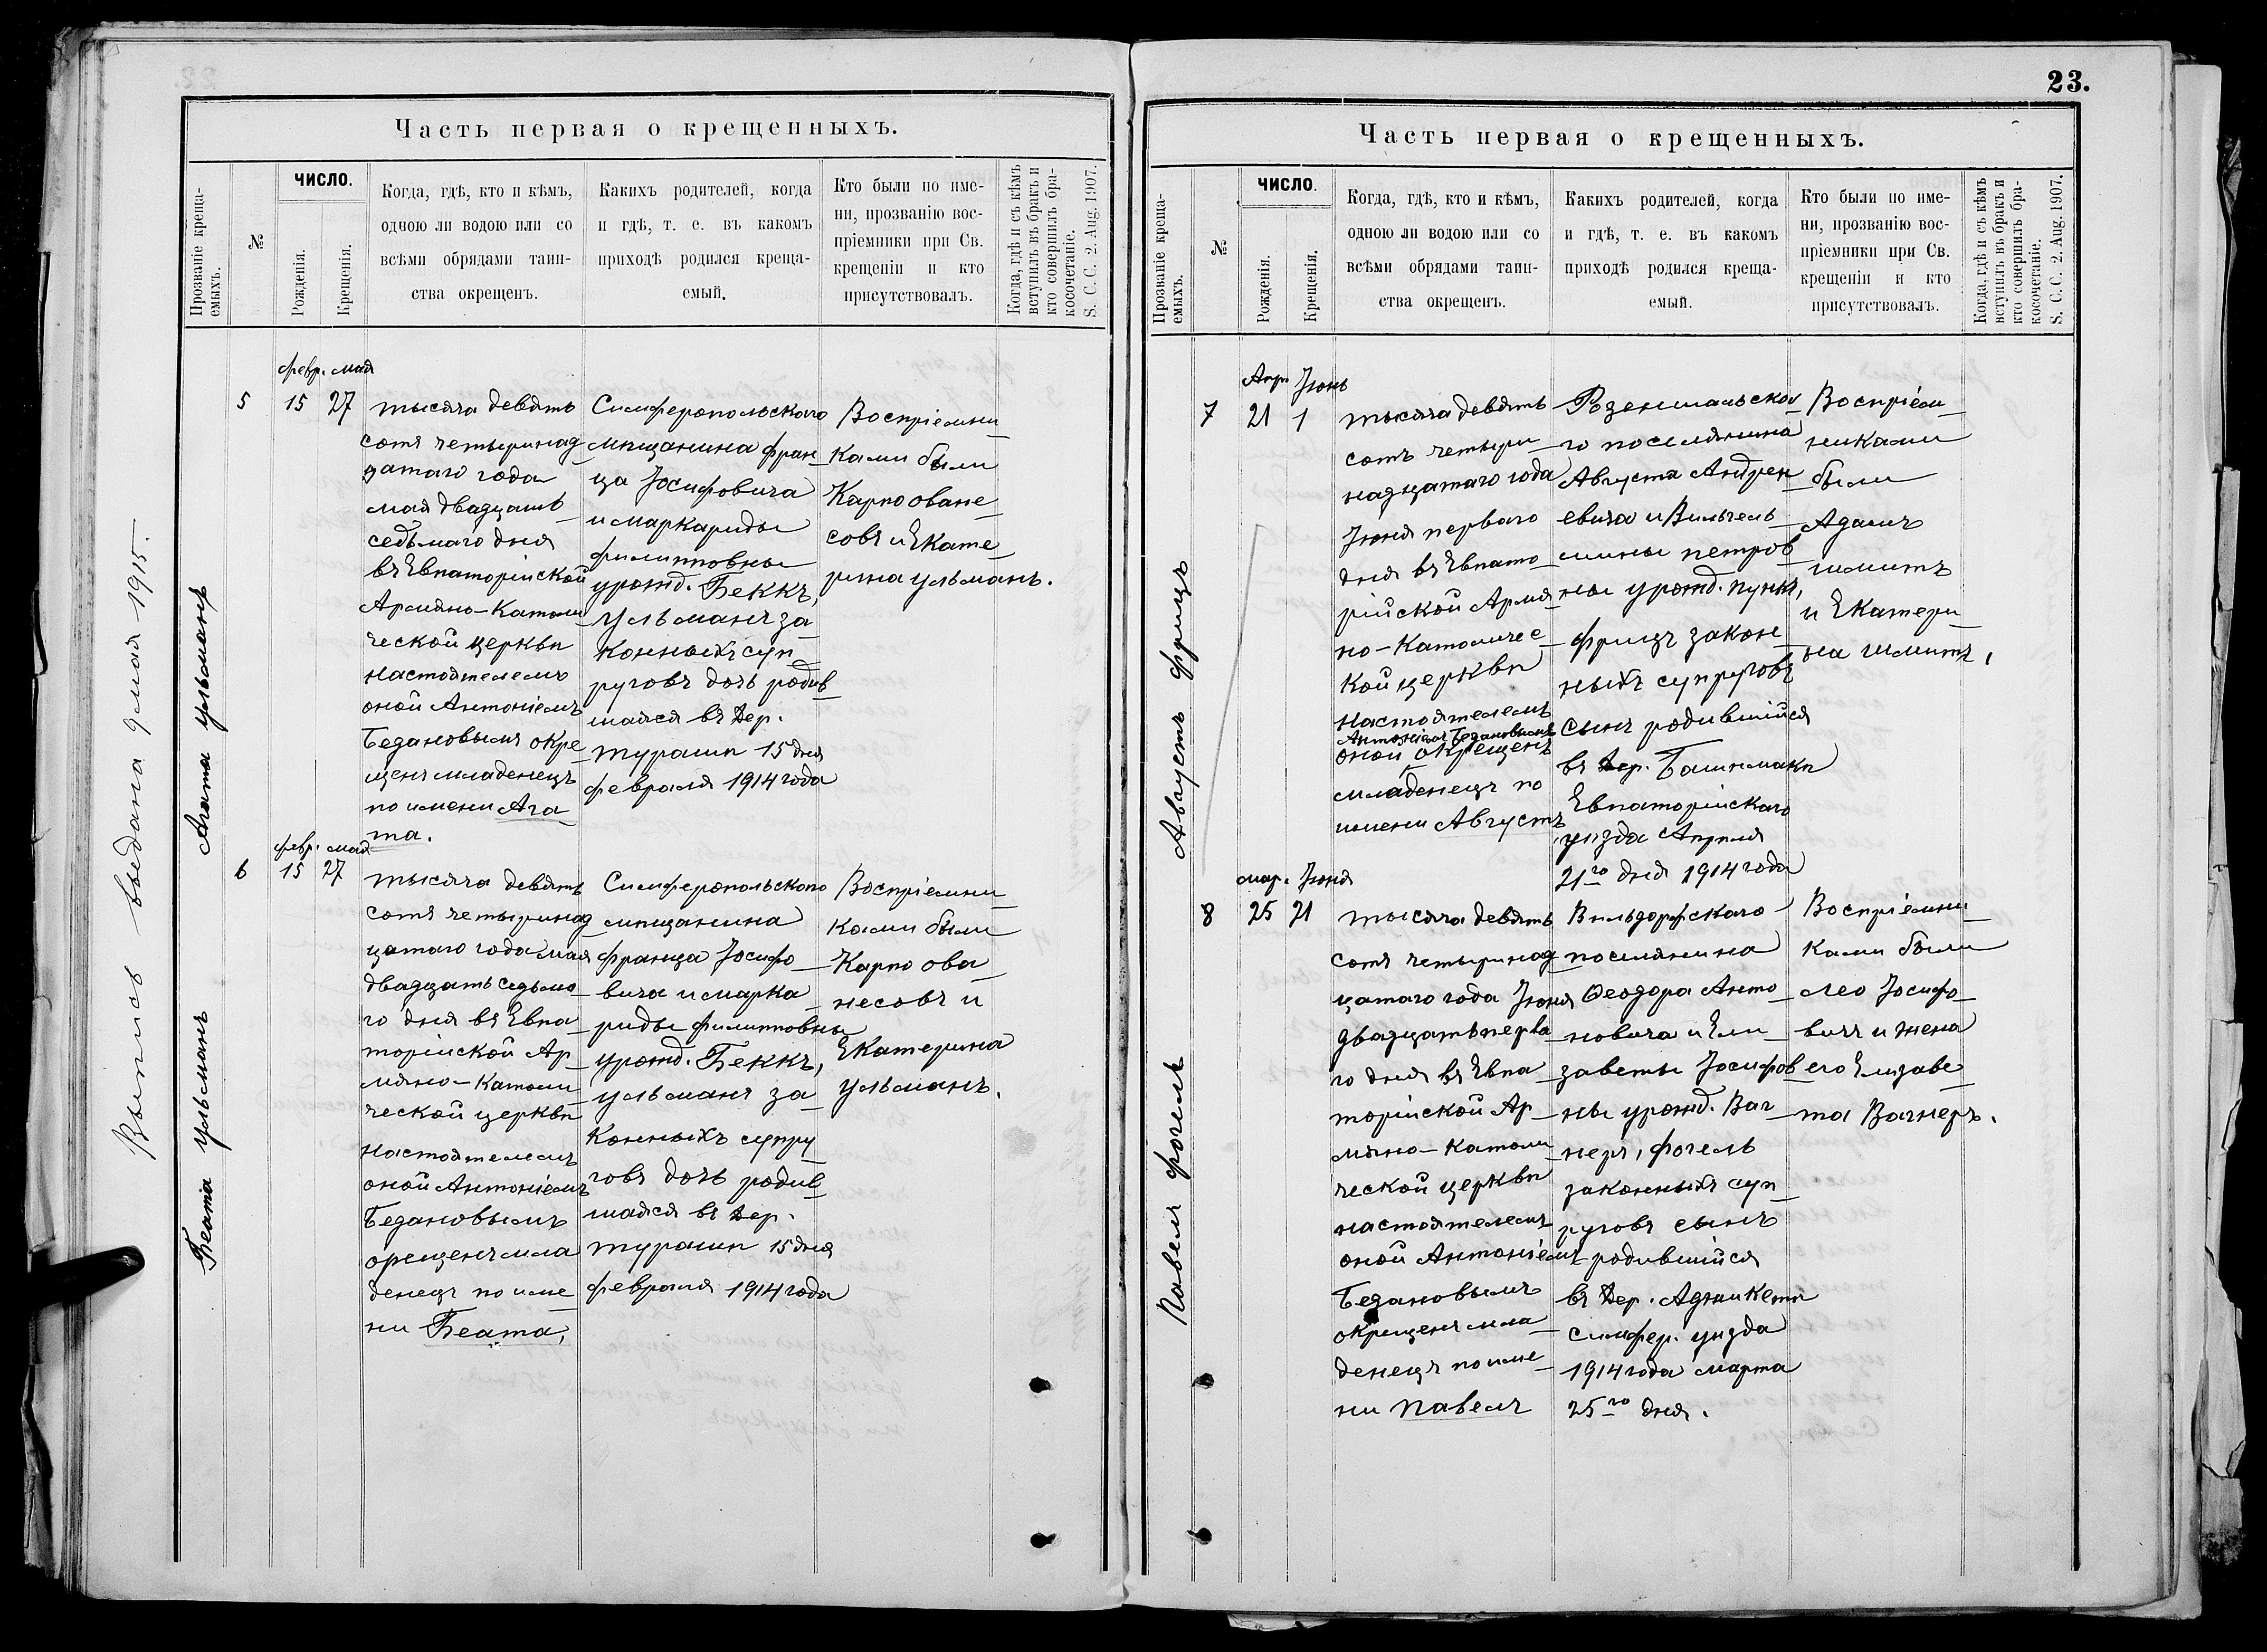 23.
Часть первая о крещенныхъ.
Прозваніе креща-
емыхъ.
№
ЧИСЛО.
Рожденія.
Крещенія.
Когда, гдѣ, кто и кѣмъ,
одною ли водою или со
всѣми обрядами таин-
ства окрещенъ.
Какихъ родителей, когда
и гдѣ, т. е. въ какомъ
приходѣ родился креща-
емый.
Кто были по име-
ни, прозванію вос-
пріемники при Св.
крещеніи и кто
присутствовалъ.
Когда, гдѣ и съ кѣмъ
вступилъ въ бракъ и
кто совершилъ бра-
косочетаніе.
S. C. C. 2. Aug. 1907.
Выпись выдана 9 мая 1915.
Агата Ульманъ
5
февр. мая
15 27
тысяча девять
сотъ четыринад
цатаго года
мая двадцать
седьмаго дня
въ Евпаторійской
Армяно-Католи
ческой церкви
настоятелемъ
оной Антоніемъ
Бедановымъ окре
щенъ младенецъ
по имени Ага
та.
Симферопольскаго
мѣщанина Фран
ца Іосифовича
и Маркариды
Филипповны
урожд. Беккъ,
Ульманъ за
конныхъ суп
руговъ дочь родив
шаяся въ дер.
Турашѣ 15 дня
февраля 1914 года
Воспріемни
ками были
Карпо Оване
совъ и Екате
рина Ульманъ.
Беата Ульманъ
6
февр. мая
15 27
тысяча девять
сотъ четыринад
цатаго года мая
двадцать седьма
го дня въ Евпа
торійской Ар
мяно-Католи
ческой церкви
настоятелемъ
оной Антоніемъ
Бедановымъ
орещенъ мла
денецъ по име
ни Беата,
Симферопольскаго
мѣщанина
Франца Іосифо
вича и Марка
риды Филипповны
урожд. Беккъ,
Ульманъ за
конныхъ супру
говъ дочь родив
шаяся въ дер.
Турашѣ 15 дня
февраля 1914 года
Воспріемни
ками были
Карпо Ова
несовъ и
Екатерина
Ульманъ.
Часть первая о крещенныхъ.
Прозваніе креща-
емыхъ.
№
ЧИСЛО.
Рожденія.
Крещенія.
Когда, гдѣ, кто и кѣмъ,
одною ли водою или со
всѣми обрядами таин-
ства окрещенъ.
Какихъ родителей, когда
и гдѣ, т. е. въ какомъ
приходѣ родился креща-
емый.
Кто были по име-
ни, прозванію вос-
пріемники при Св.
крещеніи и кто
присутствовалъ.
Когда, гдѣ и съ кѣмъ
вступилъ въ бракъ и
кто совершилъ бра-
косочетаніе.
S. C. C. 2. Aug. 1907.
Августъ Фрицъ
7
Апр. Іюнь
21 1
тысяча девять
сотъ четыри
надцатаго года
Іюня перваго
дня въ Евпато
рійской Армя
но-Католичес
кой церкви
настоятелемъ
Антоніемъ Бедановымъ
оной окрещенъ
младенецъ по
имени Августъ
Розентальска
го поселянина
Августа Андре
евича и Вильгель
мины Петров
ны урожд. Пункъ,
Фрицъ закон
ныхъ супруговъ
сынъ родившійся
въ дер.
Евпаторійскаго
уѣзда Апрѣля
21го дня 1914 года
Воспріем
никами
были
Адамъ
Шмитъ
и Екатери
на Шмитъ,
Павелъ Фогель
8
мар. Іюня
25 21
тысяча девять
сотъ четыринад
цатаго года Іюня
двадцать перва
го дня въ Евпа
торійской Ар
мяно-Католи
ческой церкви
настоятелемъ
оной Антоніемъ
Бедановымъ
окрещенъ мла
денецъ по име
ни Павелъ
Вильдорфскаго
поселянина
Ѳеодора Анто
новича и Ели
заветы Іосифов
ны урожд. Ваг
неръ, Фогель
законныхъ суп
руговъ сынъ
родившійся
въ дер. Аджикетѣ
Симфер. уѣзда
1914 года марта
25го дня.
Воспріемни
ками были
Лео Іосифо
вичъ и жена
его Елизаве
та Вагнеръ.